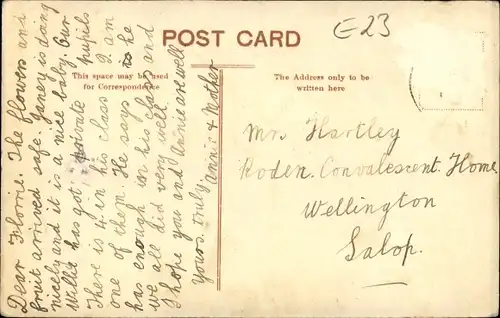 POST CARD
E23
This space may be used
for Correspondence
The Address only to be
written here
Dear Florrie. The flowers and
fruit arrived safe. Janey is doing
nicely and it is a nice baby. Our
Willie has got private pupils
There is 4 in his class I am
one of them. He says he
has enough on his hand and
we all did very well
I hope you and Annie are well
Yours. truly
Annie & Mother
Mr. Hartley
Roden. Convalescent. Home
Wellington
Salop.